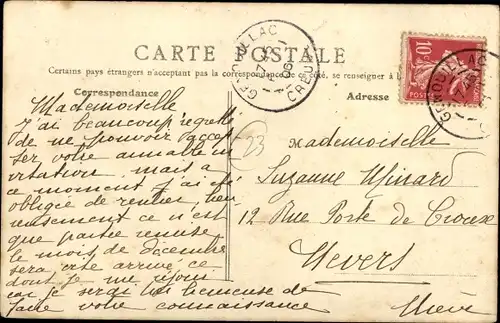 CARTE POSTALE
Certains pays étrangers n'acceptant pas la correspondance de ce côté, se renseigner à
Correspondance
Adresse
GENOUILLAC
CREUSE
10c
POSTES
GENOUILLAC
23
Mademoiselle
J'ai beaucoup regretté
de ne pouvoir accep
ter votre aimable in
vitation, mais a
ce moment j'ai été
obligée de rentrer, heu
reusement ce n'est
que partie remise
le mois de Décembre
sera vite arrivé ce
dont je me réjouis
car je serai très heureuse de
faire votre connaissance
Mademoiselle
Suzanne
12 Rue Porte de Croux
Nevers
Nièvre